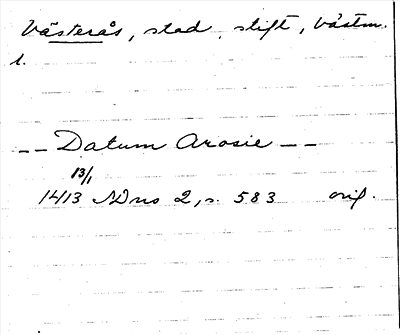 Västerås, stad, stift, Västm.
l.
-- Datum Arosie --
13/1
1413 SDns 2, s. 583 orig.